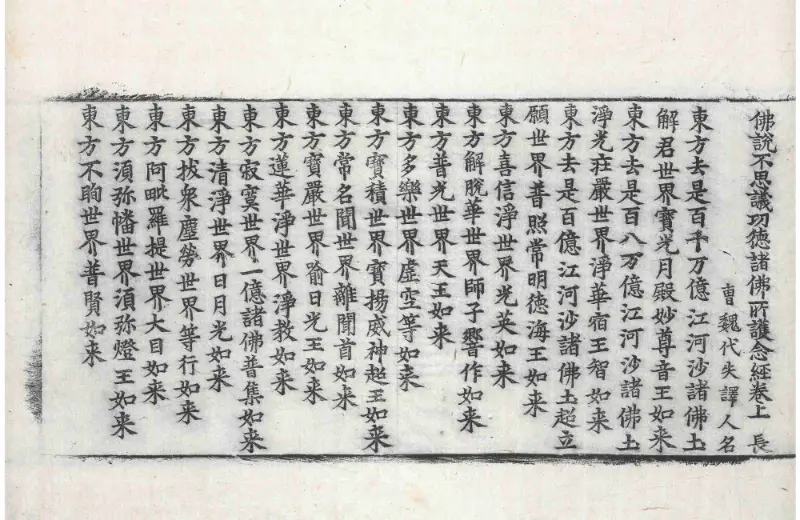 佛說不思議功德諸佛所護念經卷上 長
曹魏代失譯人名
東方去是百千万億江河沙諸佛圡
解君世界寶光月殿妙尊音王如来
東方去是百八万億江河沙諸佛圡
淨光庄嚴世界淨華宿王智如来
東方去是百億江河沙諸佛圡超立
願世界普照常明徳海王如来
東方喜信淨世界光英如来
東方解脫華世界師子響作如来
東方普光世界天王如来
東方多樂世界虛空等如来
東方寶積世界寶揚威神超王如来
東方常名聞世界離聞首如来
東方寶嚴世界踰日光王如来
東方蓮華淨世界淨教如来
東方寂寞世界一億諸佛普集如来
東方清淨世界日月光如来
東方拔衆塵勞世界等行如来
東方阿毗羅提世界大目如来
東方湏弥幡世界湏弥燈王如来
東方不眴世界普賢如来